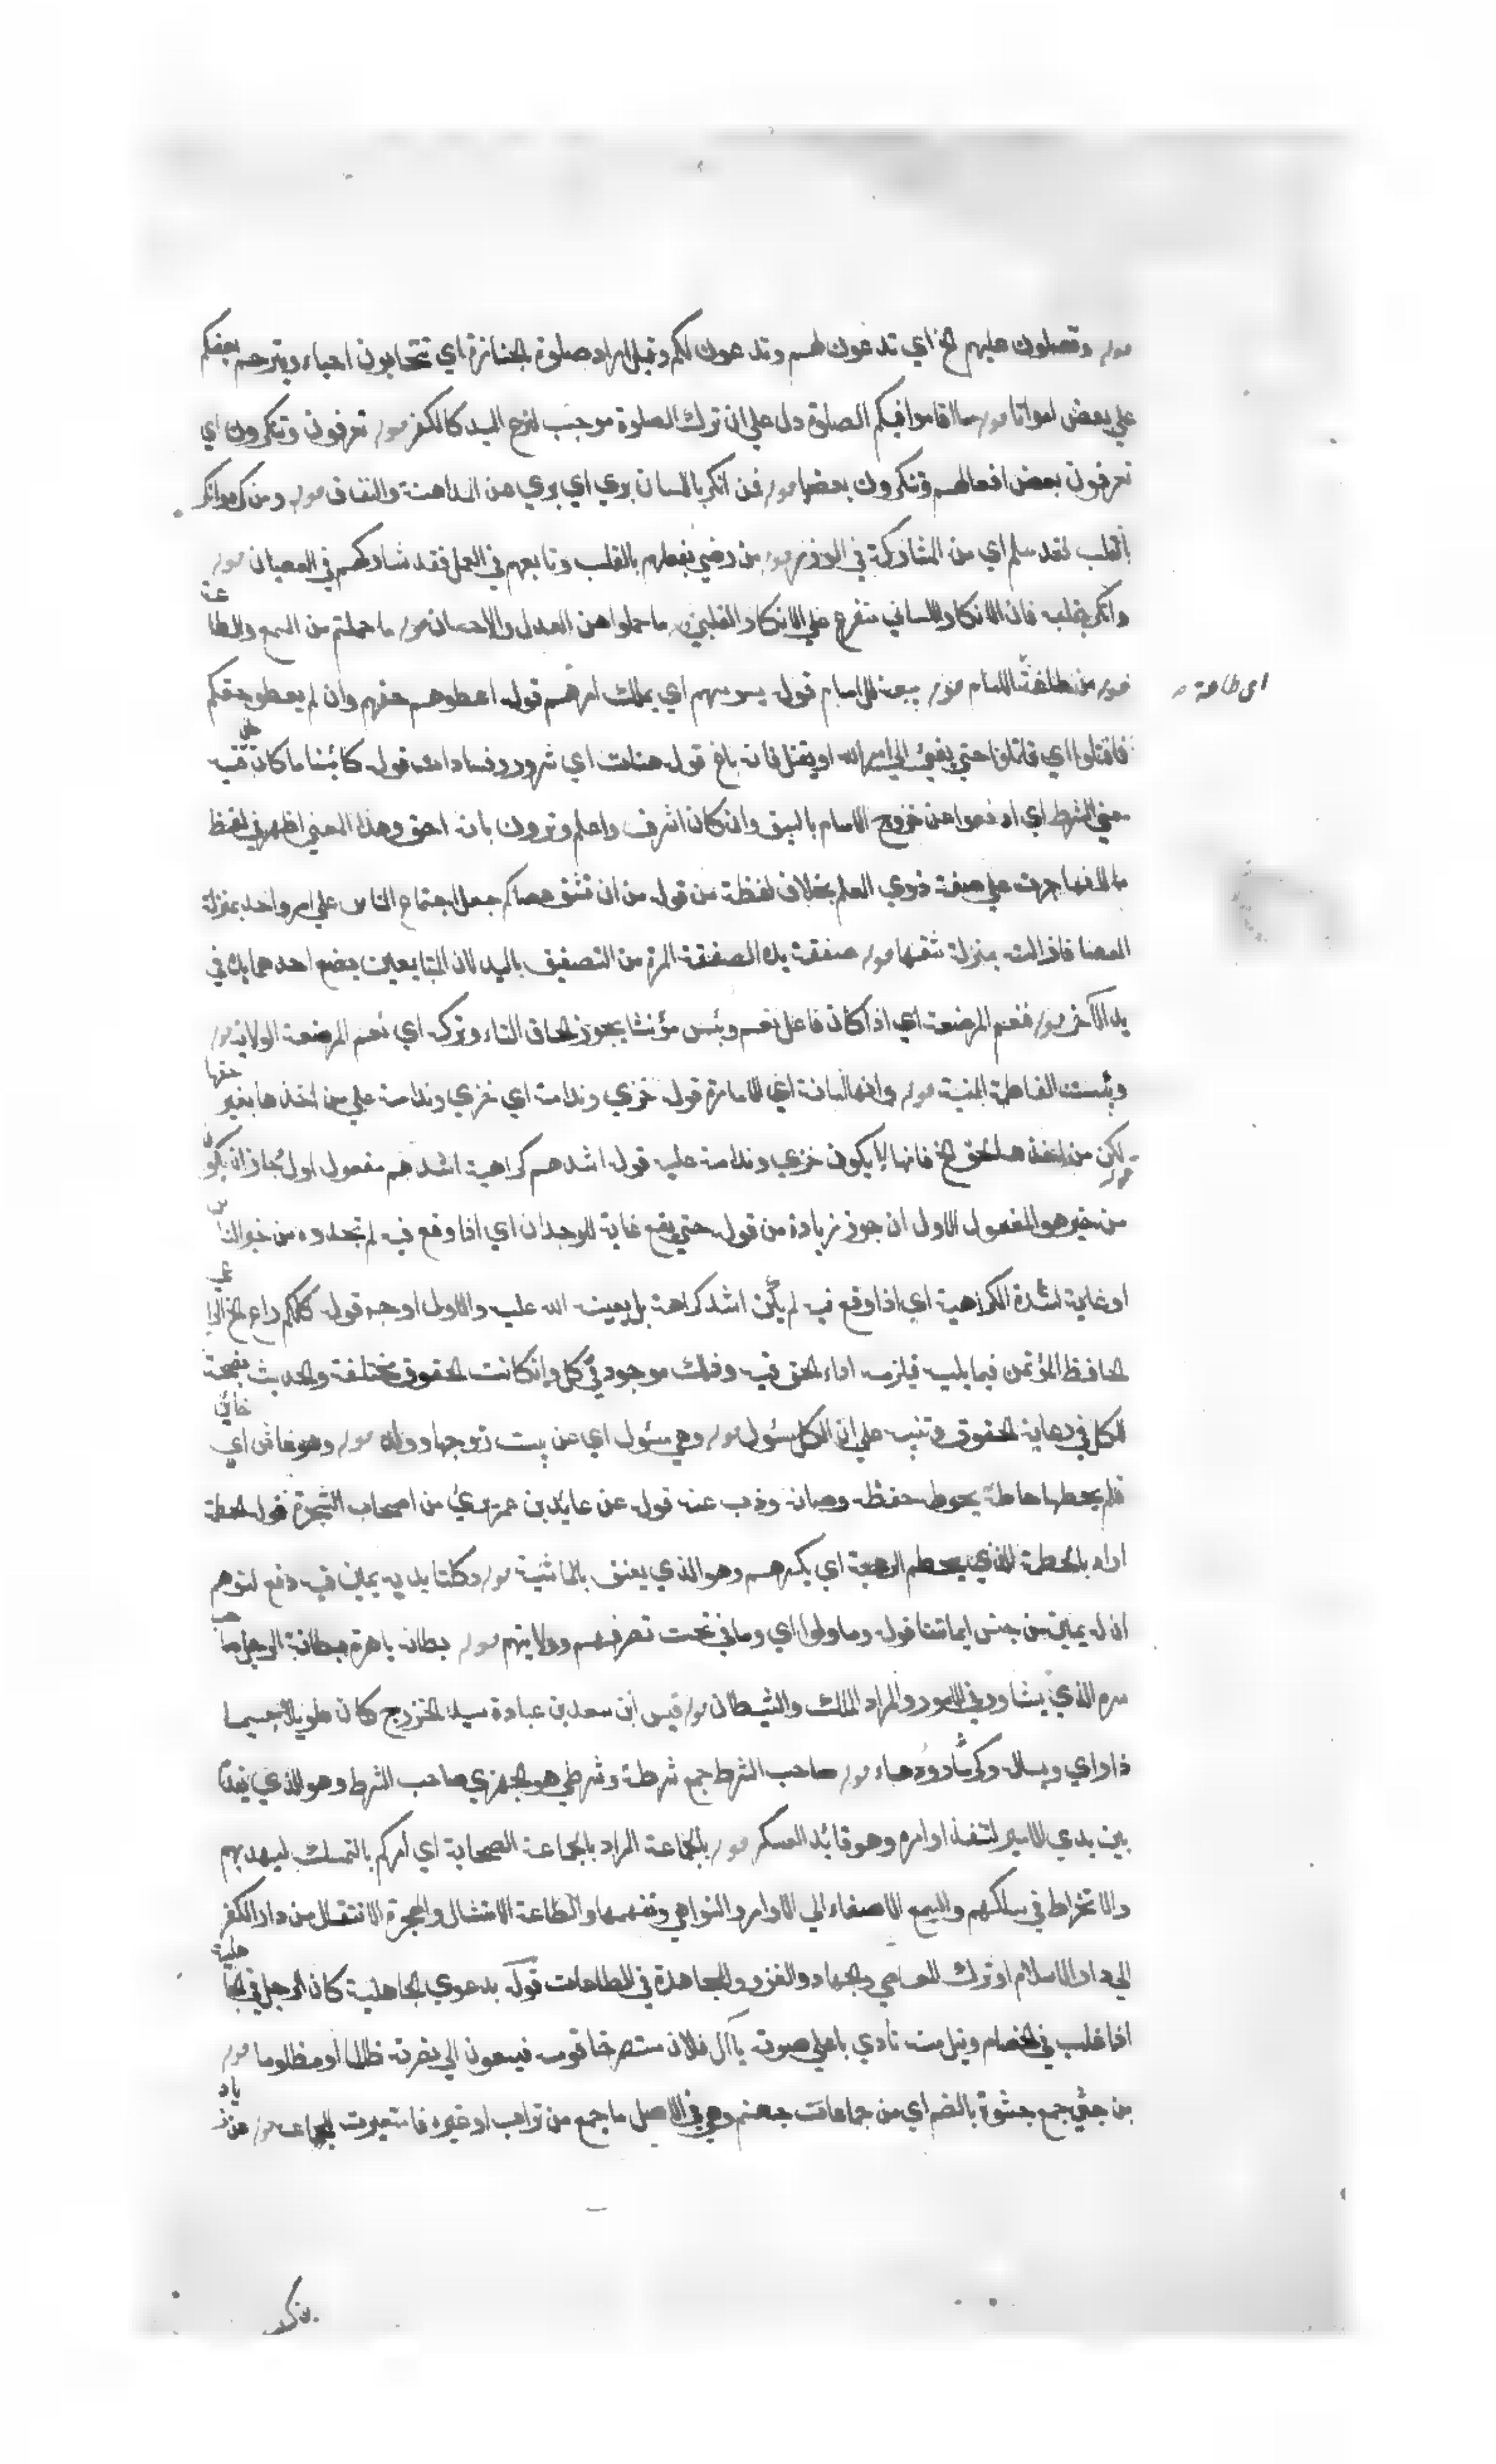 قوله وتصلون عليهم الخ اي تدعون لهم وتدعون لكم وقيل المراد صلوة الجنازة اي تتحابون احياء ويترحم بعضكم
علي بعض امواتا قوله ما اقاموا فيكم الصلوة دل علي ان ترك الصلوة موجب لنزع اليد كالكفر قوله تعرفون وتنكرون اي
تعرفون بعض افعالهم وتنكرون بعضها قوله فمن انكر باللسان بري اي بري من المداهنة والنفاق قوله ومن كره وانكر
بالقلب فقد سلم اي من المشاركة في الوزر قوله من رضي بفعلهم بالقلب وتابعهم في العمل فقد شاركهم في العصيان قوله
وانكر بقلبه فان الانكار اللساني متفرع علي الانكار القلبي قوله ما حملوا من العدل والاحسان قوله ما حملتم من السمع والطاعة
قوله من طاعة الامام قوله بيعة للامام قوله يسوسهم اي يملك امرهم قوله اعطوهم حقهم وان لم يعطو حقكم
اي طاعة
فاقتلوا اي قاتلوا حتي يفيئ الي امر الله او يقتل فانه باغ قوله هنات اي شرور وفسادات قوله كائنا ما كان فيه
معني الشرط اي ادفعوا من خروج الامام بالسيف وان كان اشرف واعلم وترون بانه احق وهذا المعني اظهر في لفظ
ما لانها جرت علي صفة ذوي العلم بخلاف لفظة من قوله من ان تشق عصاكم جعل اجتماع الناس علي امر واحد بمنزلة
العصا فازالته بمنزلة شقها قوله صفقة يده الصفقة المرة من التصفيق باليد لان المتبايعين يضع احدهما يده في
يد الآخر قوله فنعم المرضعة اي اذا كان فاعل نعم وبئس مؤنثا يجوز الحاق التاء وتركه اي نعم المرضعة الولاية قوله
وبئست الفاطمة المنية قوله وانها امانة اي الامارة قوله خزي وندامة اي خزي وندامة علي من اخذها بغير حقها
لكن من اخذها بحق الخ فانها لا يكون خزي وندامة عليه قوله اشدهم كراهية اشدهم مفعول اول وجاز ان يكون
من خير هو المفعول الاول ان جوز زيادة من قوله حتي يقع غاية للوجدان اي اذا وقع فيه لم تجدوه من خير الناس
او غاية لشدة الكراهية اي اذا وقع فيه لم يكن اشد كراهة بل يعينه الله عليه والاول اوجه قوله كلكم راع الخ الراعي
الحافظ المؤتمن فيما يليه فيلزمه اداء الحق فيه وذلك موجود في كل وان كانت الحقوق مختلفة والحديث نصيحة
للكل في رعاية الحقوق وتنبيه علي ان الكل مسؤل قوله وهي مسئول اي عن بيت زوجها وولده قوله وهو غاش اي خاين
فلم يحطها حاطه يحوطه حفظه وصانه وذب عنه قوله عن عايذ بن عمرو من اصحاب الشجرة قوله الحطمة
اراد بالحطمة الذي يحطم الرعية اي يكسرهم وهو الذي يعنف بالماشية قوله وكلتا يديه يمين فيه دفع لتوهم
ان له يمين من جنس ايماننا قوله وما ولوا اي وما في تحت تصرفهم وولايتهم قوله بطانة بطانة الرجل صاحب
سره الذي يشاوره في الامور والمراد الملك والشيطان قوله قيس ابن سعد بن عبادة سيد الخزرج كان طويلا جسيما
ذا راي ودهاء قوله صاحب الشرط جمع شرطة وشرطي صاحب الشرط وهو الذي يتقدم
بين يدي الامير لتنفيذ اوامره وهو قائد العسكر قوله بالجماعة المراد بالجماعة الصحابة اي امركم بالتمسك بهم
والانخراط في سلكهم والسمع الاصغاء الي الاوامر والنواهي وتفهمها والطاعة الامتثال والهجرة الانتقال من دار الكفر
الي دار الاسلام او ترك المعاصي والجهاد والغزو والمجاهدة في الطاعات قوله بدعوي الجاهلية كان الرجل في الجاهلية
اذا غلب في الخصام نادي باعلي صوته يا آل فلان مستصرخا قومه فيسعون الي نصرته ظالما او مظلوما قوله
من جثي جمع جثوة بالضم اي من جماعات جهنم وهي في الاصل ما جمع من تراب او غيره فاستعيرت للجماعة قوله عن زياد